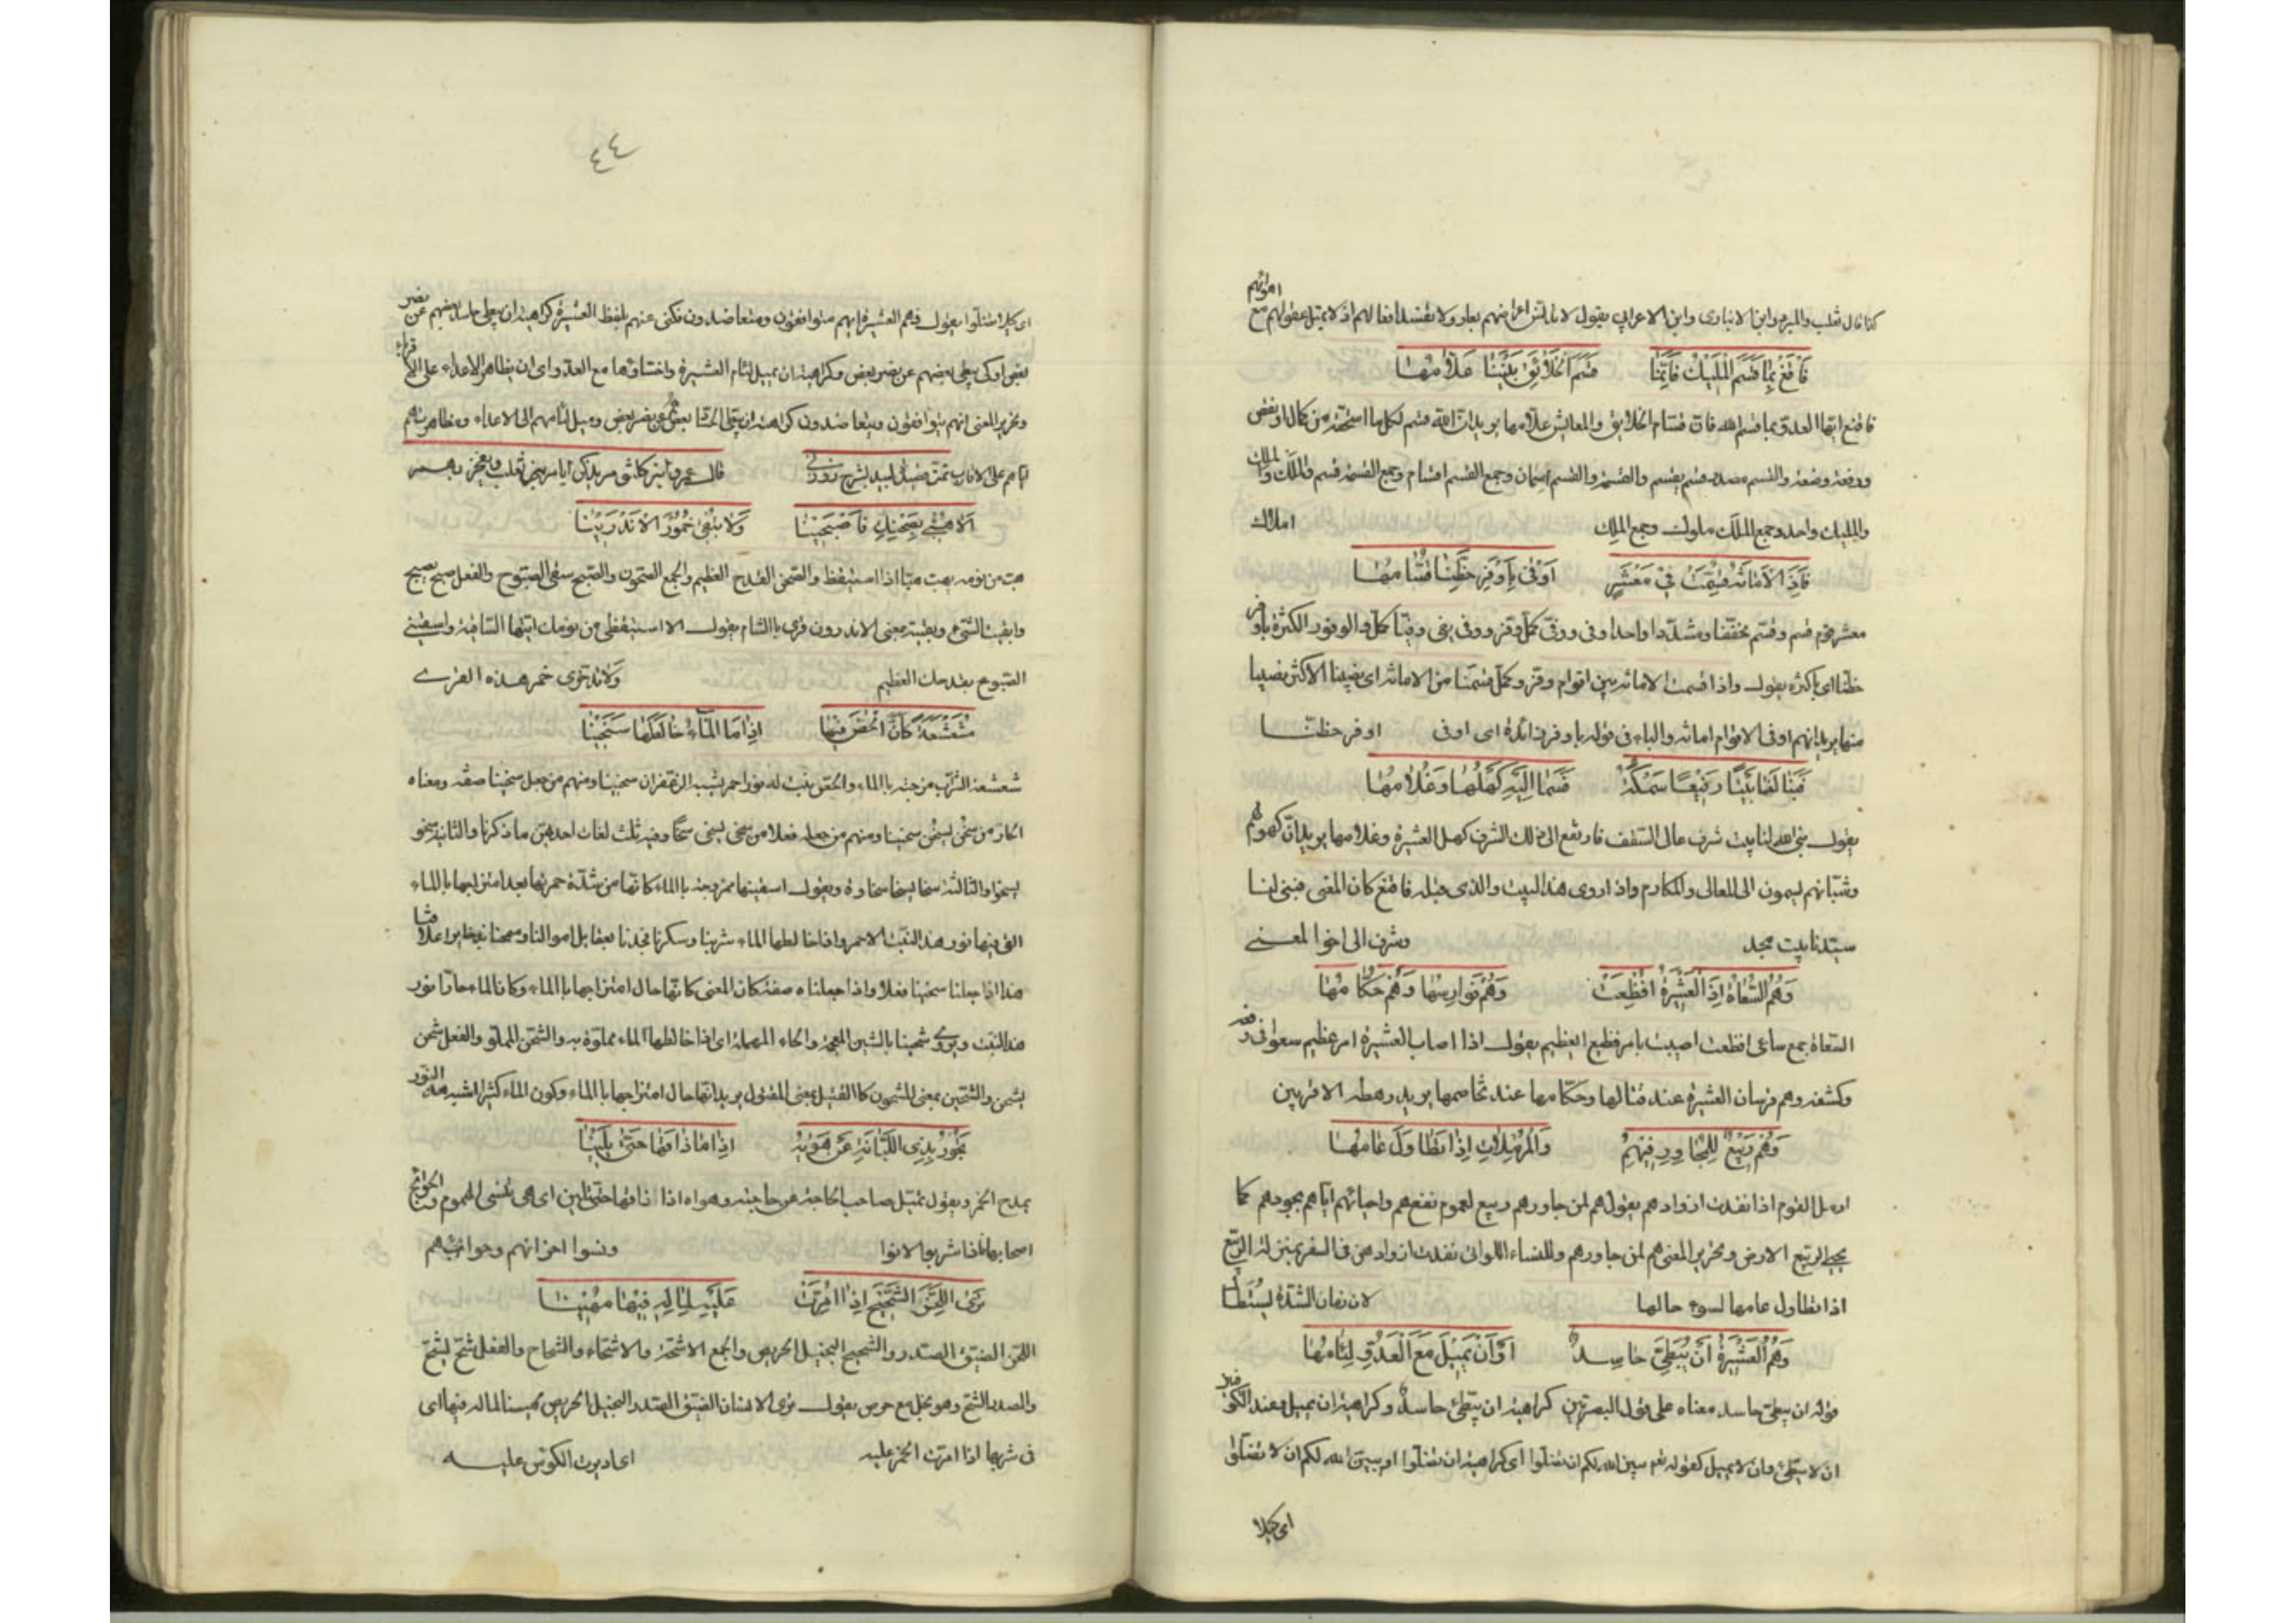 اهوائهم
كذا قال ثعلب والمبرد وابن الانبارى وابن الاعرابي يقول لا تدنس اعراضهم بعار ولا تفسد افعالهم اذ لا تميل عقولهم مع
فَاقْنَعْ بِمَا قَسَمَ الْمَلِيكُ فَاِنَّمَا قَسَمَ الْخَلَائِقَ بَيْنَنَا عَلَّامُهَا
فاقنع ايها العدو بما قسم الله فان قسام الخلايق والمعايش علامها يريد ان الله قسم لكل ما استحقه من كمال او نقص
ورفعة وضعة والقسم مصدر قسم يقسم والقسمة والقسم اسمان وجمع القسم اقسام وجمع القسمة قسم والملك والملك
والمليك واحد وجمع الملك ملوك وجمع الملك املاك
فَاِذَا الْاَمَانَةُ قُسِّمَتْ فِي مَعْشَرٍ اَوْفَى بِاَوْفَرِ حَظِّنَا قَسَّامُهَا
معشر قوم قسم وقسّم مخففا ومشددا واحد اوفى ووفى كمل وفر ووفى يفى وفيا كمل والوفور الكثرة باوفر
حظنا اى باكثره يقول واذا قسمت الامانة بين اقوام وفر وكمل قسمنا من الامانة اى نصيبنا الاكثر نصيبا
منها يريد انهم اوفى الاقوام امانة والباء فى قوله باوفر زائدة اى اوفى اوفر حظنا
فَبَنَا لَنَا بَيْتًا رَفِيعًا سَمْكُهُ فَسَمَا اِلَيْهِ كَهْلُهَا وَغُلَامُهَا
يقول بنى الله لنا بيت شرف عالى السقف فارتفع الى ذلك الشرف كهل العشيرة وغلامها يريد ان كهولهم
وشبانهم يسمون الى المعالى والمكارم واذا روى هذا البيت والذى قبله فاقنع كان المعنى فبنى لنا
سيدنا بيت مجد وشرف الى اخر المعنى
وَهُمُ السُّعَاةُ اِذَا الْعَشِيرَةُ اُفْظِعَتْ وَهُمْ فَوَارِسُهَا وَهُمْ حُكَّامُهَا
السعاة جمع ساعى افظعت اصيبت بامر فظيع العظيم يقول اذا اصاب العشيرة امر عظيم سعوا فى دفعه
وكشفه وهم فرسان العشيرة عند قتالها وحكامها عند تخاصمها يريد رهطه الاقربين
وَهُمْ رَبِيعٌ لِلْمُجَاوِرِ فِيهِمُ وَالْمُرْمِلَاتِ اِذَا تَطَاوَلَ عَامُهَا
ارمل القوم اذا نفدت ازوادهم يقول هم لمن جاورهم ربيع لعموم نفعهم واحيائهم اياهم بجودهم كما
يحيي الربيع الارض وتحرير المعنى هم لمن جاورهم وللنساء اللواتى نفدت ازوادهن فى السفر بمنزلة الربيع
اذا تطاول عامها لسوء حالها لان زمان الشدة يستطال
وَهُمُ الْعَشِيرَةُ اَنْ يُبَطِّئَ حَاسِدٌ اَوْ اَنْ يَمِيلَ مَعَ الْعَدُوِّ لِئَامُهَا
قوله ان يبطئ حاسد معناه على قول البصريين كراهية ان يبطئ حاسد وكراهية ان يميل وعند الكوفيين
ان لا يبطئ وان لا يميل كقوله تعم يبين الله لكم ان تضلوا اى كراهية ان تضلوا او يبين الله لكم ان لا تضلوا
اى كيلا
٤٤
اى كيلا تضلوا يقول وهم العشيرة انهم متوافقون ومتعاضدون فكنى عنهم بلفظ العشيرة كراهية ان يبطئ حاسد بعضهم عن نصر
بعض او كى يبطئ بعضهم عن نصر بعض وكراهية ان يميل لئام العشيرة مع العدو اى ان يظاهر الاعداء على الاقرباء
وتحرير المعنى انهم يتوافقون ويتعاضدون كراهة ان بعضهم عن نصر بعض وميل لئامهم الى الاعداء ومظاهرتهم
اياهم على الاقارب تمت قصيدة لبيد بشرح زوزنى قال عمرو بن كلثوم يذكر ايام بنى ثعلب ويفخر بهم
اَلَا هُبِّي بِصَحْنِكِ فَاصْبَحِينَا وَلَا تُبْقِي خُمُورَ الْاَنْدَرِينَا
هب من نومه يهب هبا اذا استيقظ والصحن القدح العظيم والجمع الصحون والصبح سقى الصبوح والفعل صبح يصبح
وابقيت الشئ وبقيته بمعنى الاندرون قرى بالشام يقول الا استيقظى من نومك ايتها الساقية واسقينى
الصبوح بقدحك العظيم ولا تدخرى خمر هذه القرى
مُشَعْشَعَةً كَاَنَّ الْحُصَّ فِيهَا اِذَا مَا الْمَاءُ خَالَطَهَا سَخِينَا
شعشعت الشراب مزجته بالماء والحص نبت له نور احمر يشبه الزعفران سخينا ومنهم من جعل سخينا صفة ومعناه
الحار من سخن يسخن سخينا ومنهم من جعله فعلا من سخى يسخى سخا وفيه ثلث لغات احديهن ما ذكرنا والثانية سخو
يسخو والثالثة سخا يسخا سخاوة ويقول اسقينها ممزوجة بالماء كانها من شدة حمرتها بعد امتزاجها بالماء
القى فيها نور هذا النبت الاحمر واذا خالطها الماء شربنا وسكرنا
هذا اذا جعلنا سخينا فعلا واذا جعلناه صفة كان المعنى كانها حال امتزاجها بالماء وكان الماء حارا نور
هذا النبت ويروى شحينا بالشين المعجمة والحاء المهملة اى اذا خالطها الماء مملوة به والشحن الملو والفعل شحن
يشحن والشحين بمعنى المشحون كالقتيل بمعنى المقتول يريد انها حال امتزاجها بالماء وكون الماء كثيرا تشبه هذا النور
تَجُورُ بِذِي اللُّبَانَةِ عَنْ هَوَاهُ اِذَا مَا ذَاقَهَا حَتَّى يَلِينَا
يمدح الخمر ويقول تميل صاحب الحاجة عن حاجته وهواه اذا ذاقها حتى يلين اى هى تنسى الهموم والحوائج
اصحابها فاذا شربوا لانوا ونسوا احزانهم وحوائجهم
تَرَى اللَّحِزَ الشَّحِيحَ اِذَا اُمِرَّتْ عَلَيْهِ لِمَالِهِ فِيهَا مُهِينَا
اللحز الضيق الصدر والشحيح البخيل الحريص والجمع الاشحة والاشحاء والشحاح والفعل شح يشح
والمصدر الشح وهو بخل مع حرص يقول ترى الانسان الضيق الصدر البخيل الحريص مهينا لماله فيها اى
فى شربها اذا امرت الخمر عليه اى اديرت الكؤس عليه